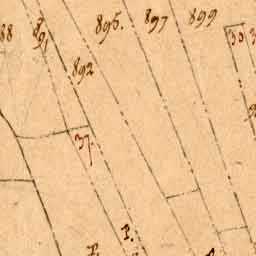 88
891
895.
897
899
892
33
37.
P.
P.